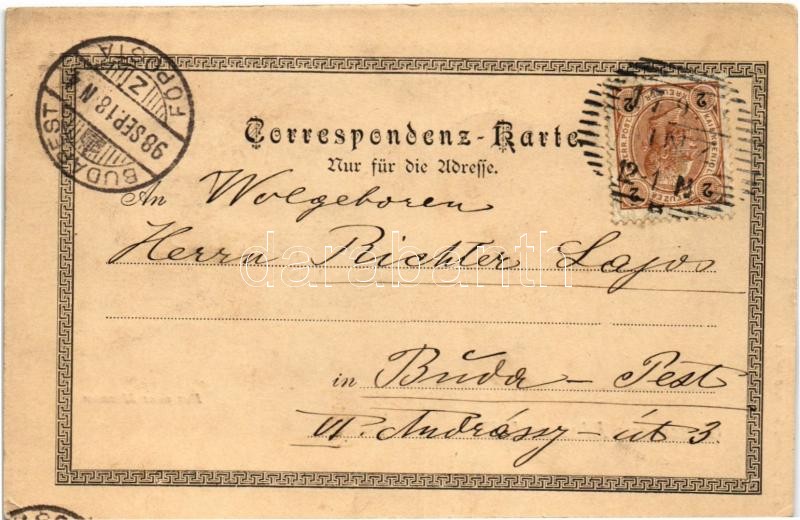 BUDAPEST
98 SEP. 18. N 4
FŐPOSTA
Correspondenz-Karte
Nur für die Adresse.
An Wolgeboren
Herrn Richter Lajos
darabanth
in Buda-Pest
VI. Andrássy-út 3.